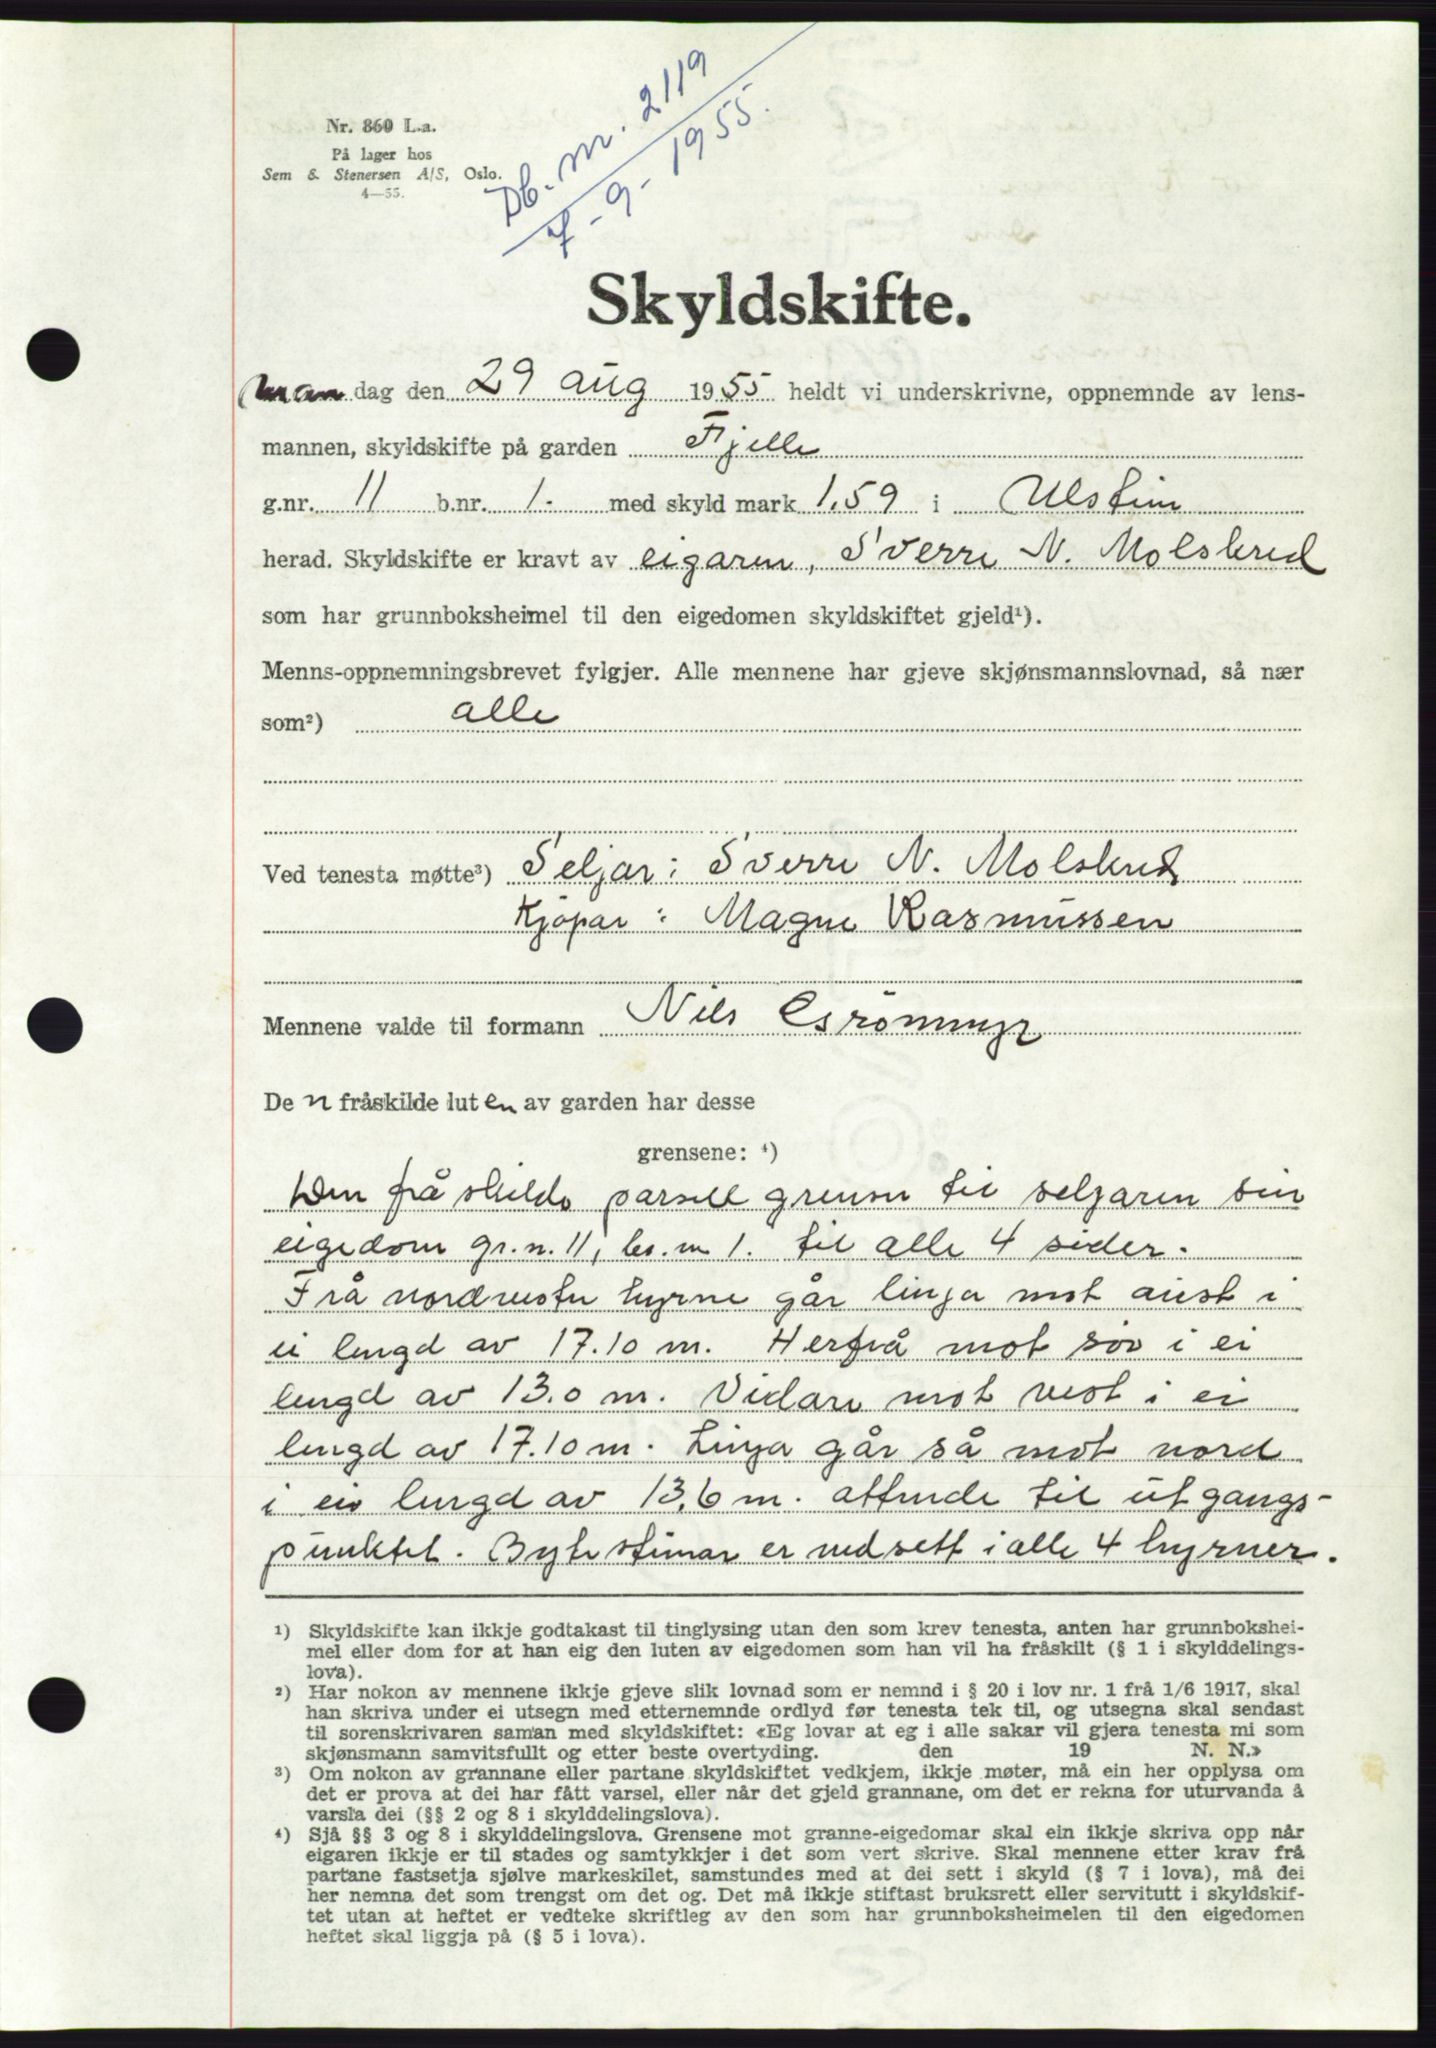 Nr. 860 L.a.
På lager hos
Sem & Stenersen A/S, Oslo.
4—55.
Db. nr. 2119
-9-1955.
Skyldskifte.
Man dag den 29 aug 1955 heldt vi underskrivne, oppnemnde av lens-
mannen, skyldskifte på garden Fjelle
g.nr. 11 b.nr. 1. med skyld mark 1,59 i Ulstein
herad. Skyldskifte er kravt av eigaren, Sverre N. Molskred
som har grunnboksheimel til den eigedomen skyldskiftet gjeld¹).
Menns-oppnemningsbrevet fylgjer. Alle mennene har gjeve skjønsmannslovnad, så nær
som²) alle
Ved tenesta møtte³) Seljar: Sverre N. Molskred
Kjöpar : Magne Rasmussen
Mennene valde til formann Nils
De n fråskilde lut en av garden har desse
grensene: ⁴)
Den frå skilde parsell grenser til selgaren sin
eigedom gr.n. 11, br.n 1. til alle 4 sider.
Frå nordvestre hyrne går linja mot aust i
ei lengd av 17.10 m. Herfrå mot sör i ei
lengd av 13.0 m. Vidare mot vest i ei
lengd av 17.10 m. Linja går så mot nord
i ei lengd av 13,6 m. attende til utgangs-
punktet. Bytesteinar er nedsett i alle 4 hyrner.
¹) Skyldskifte kan ikkje godtakast til tinglysing utan den som krev tenesta, anten har grunnbokshei-
mel eller dom for at han eig den luten av eigedomen som han vil ha fråskilt (§ 1 i skylddelings-
lova).
²) Har nokon av mennene ikkje gjeve slik lovnad som er nemnd i § 20 i lov nr. 1 frå 1/6 1917, skal
han skriva under ei utsegn med etternemnde ordlyd før tenesta tek til, og utsegna skal sendast
til sorenskrivaren saman med skyldskiftet: «Eg lovar at eg i alle sakar vil gjera tenesta mi som
skjønsmann samvitsfullt og etter beste overtyding. den 19 N. N.»
³) Om nokon av grannane eller partane skyldskiftet vedkjem, ikkje møter, må ein her opplysa om
det er prova at dei har fått varsel, eller når det gjeld grannane, om det er rekna for uturvanda å
varsla dei (§§ 2 og 8 i skylddelingslova).
⁴) Sjå §§ 3 og 8 i skylddelingslova. Grensene mot granne-eigedomar skal ein ikkje skriva opp når
eigaren ikkje er til stades og samtykkjer i det som vert skrive. Skal mennene etter krav frå
partane fastsetja sjølve markeskilet, samstundes med at dei sett i skyld (§ 7 i lova), må dei
her nemna det som trengst om det og. Det må ikkje stiftast bruksrett eller servitutt i skyldskif-
tet utan at heftet er vedteke skriftleg av den som har grunnboksheimelen til den eigedomen
heftet skal liggja på (§ 5 i lova).